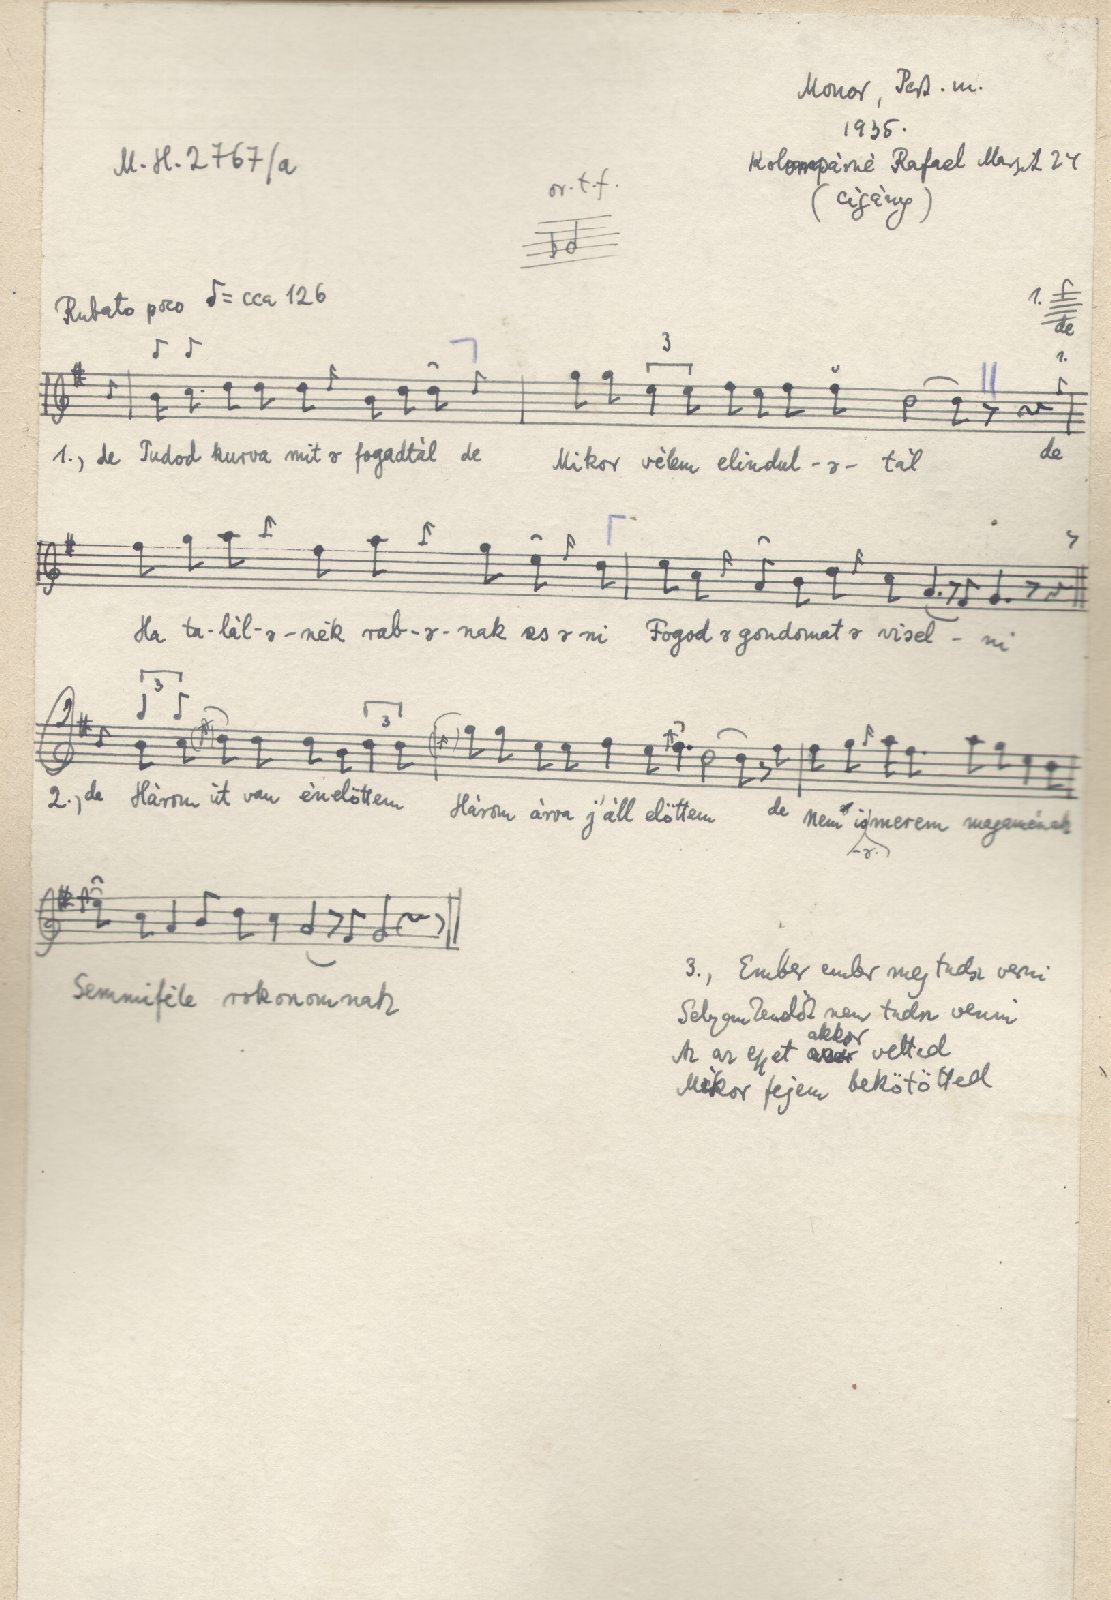 Monor, Pest. m.
1935.
M. H. 2767/a
Kolompárné Rafael Margit 24
(cigány)
or. t. f.
Rubato poco ♪= cca 126
1.
de
3
1.
1., de Tudod kurva mit ə fogadtál de Mikor vélem elindul-ə-tál de
Ha ta-lál-ə-nék rab-ə-nak es ə ni Fogod ə gondomat ə visel-ni
3
3
2., de Három út van énelőttem Három árva j'áll előttem de Nem is merem magaménak
-ə.
Semmiféle rokonomnak
3., Ember ember meg tudsz verni
nem tudsz venni
Az az egyet akkor vetted
Mikor fejem bekötötted